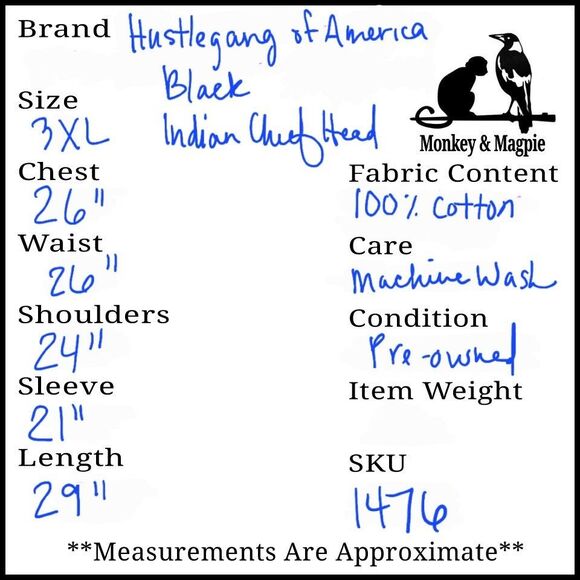 Brand Hustlegang of America
Black
Size
3XL Indian Chief Head
Monkey & Magpie
Chest
26"
Fabric Content
100% Cotton
Waist
26"
Care
Machine Wash
Shoulders
24"
Condition
Pre-owned
Sleeve
21"
Item Weight
Length
29"
SKU
1476
**Measurements Are Approximate**